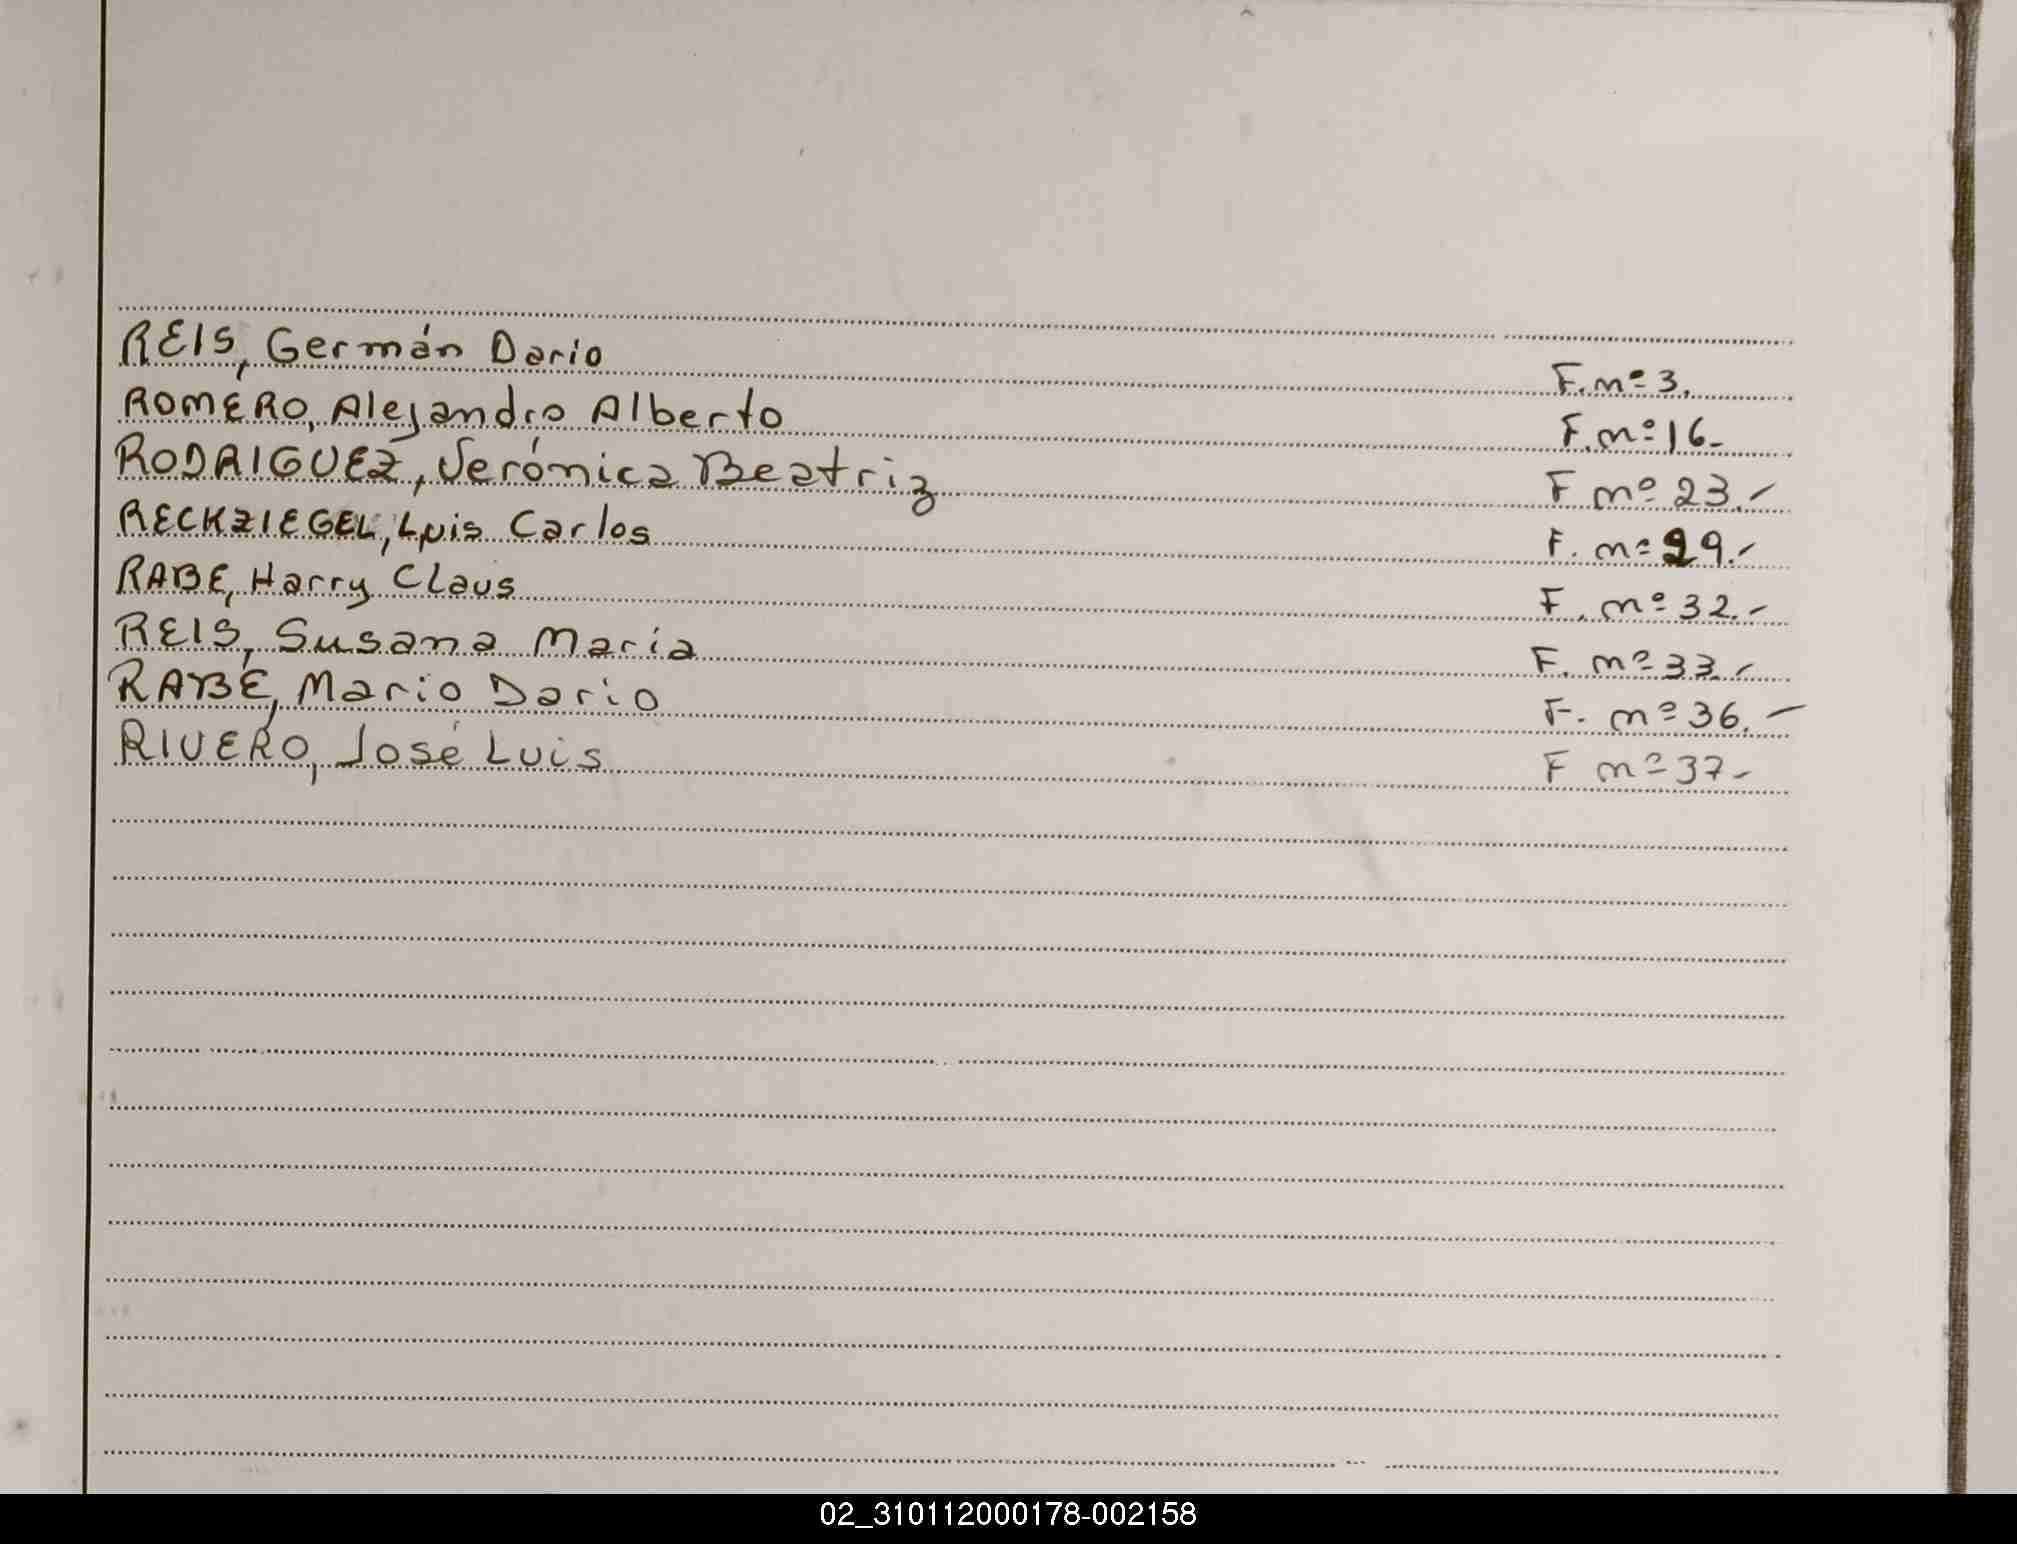 REIS, Germán Dario F. nº 3.
ROMERO, Alejandro Alberto F. nº 16-
RODRIGUEZ, Verónica Beatriz F nº 23.-
RECKZIEGEL, Luis Carlos F. nº 29.-
RABE, Harry Claus F. nº 32.-
REIS, Susana Maria F. nº 33.-
RABE, Mario Dario F. nº 36.-
RIVERO, José Luis F nº 37-
02_310112000178-002158